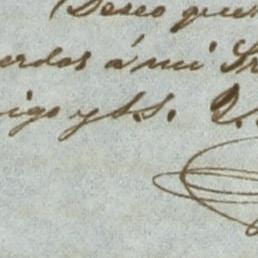 Deseo que
erdos á mi Sr
igo y S.S. Q.